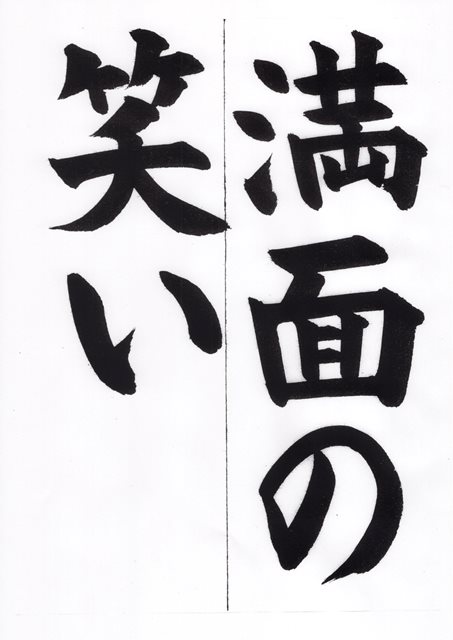 満面の
笑い